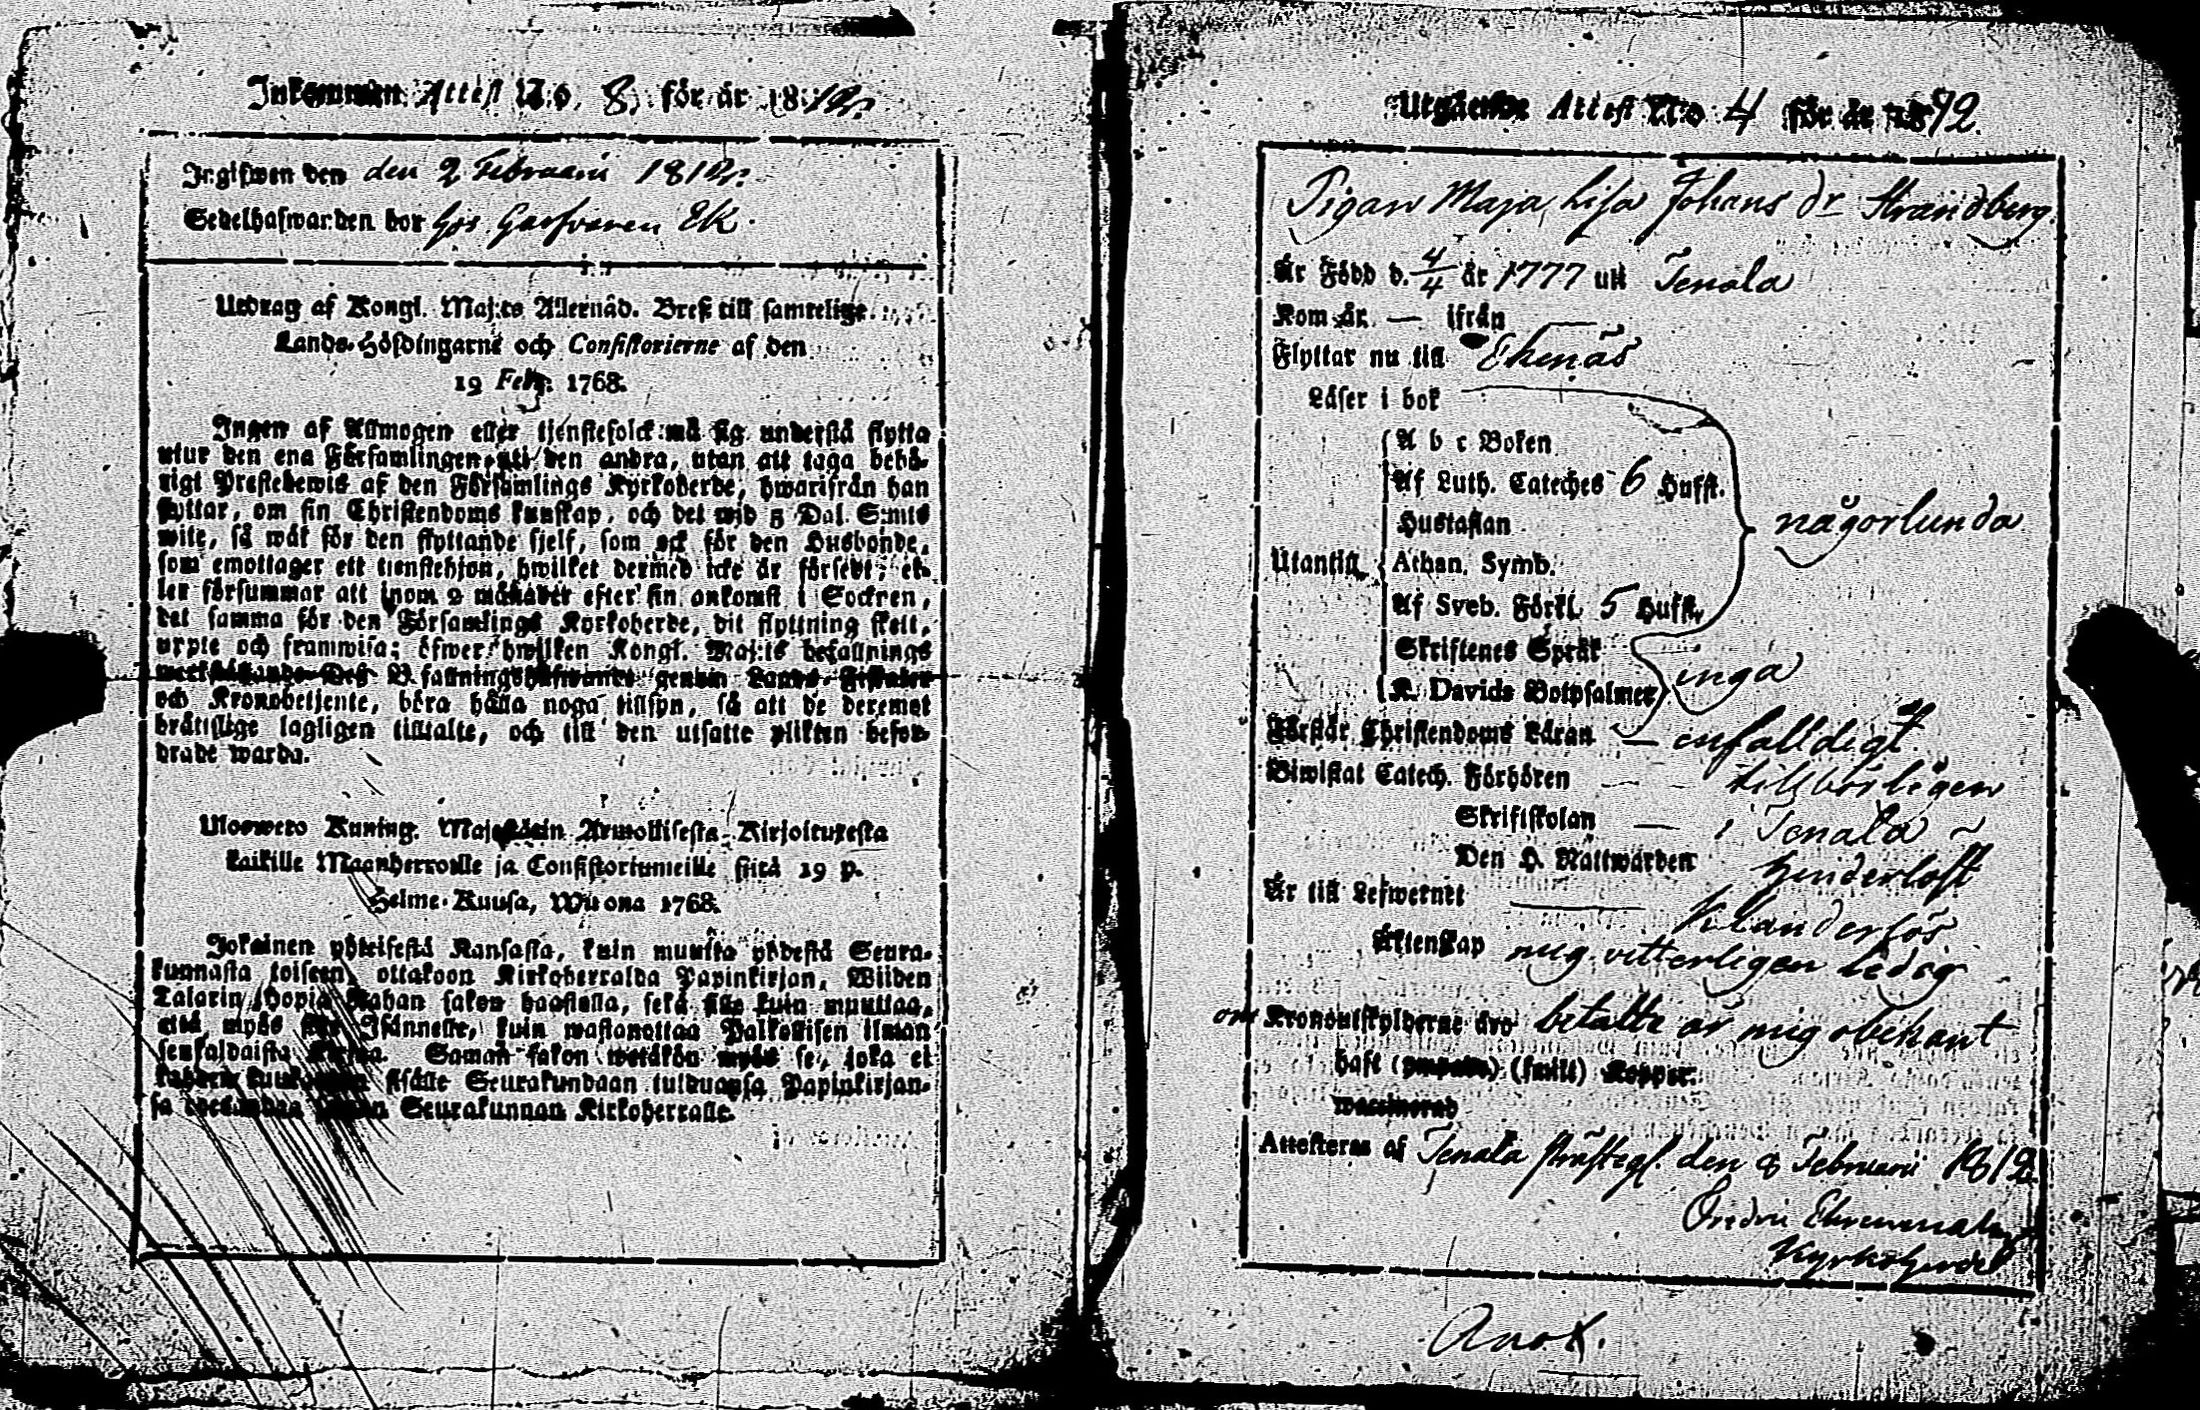 Inkommen Attest N:o 8. för år 1812.
Ingifwen den den 2 Februarii 1812.
Sedelhafwarden bor hos Garfvaren Ek.
Utdrag af Kongl. Maj:ts Allernåd. Bref till samtelige
Lands-Höfdingarne och Consistorierne af den
19 Febr. 1768.
Ingen af Allmogen eller tjenstefolck må sig understå flytta
utur den ena Församlingen uti den andra, utan att taga behö-
rigt Prestebewis af den Församlings Kyrkoherde, hwarifrån han
flyttar, om sin Christendoms kunskap, och det wid 5 Dal. S:mts
wite, så wäl för den flyttande sjelf, som ock för den Husbonde,
som emottager ett tienstehjon, hwilket dermed icke är försedt; el-
ler försummar att inom 2 månader efter sin ankomst i Socknen,
det samma för den Församlings Kyrkoherde, dit flyttning skett,
uppte och framwisa; öfwer hwilken Kongl. Maj:ts befallnings
werkställande Des B.fallningshafwande genom Lands-Fiskaler
och Kronobetjente, böra hålla noga tillsyn, så att de deremot
bråttslige lagligen tilltalte, och till den utsatte plikten befor-
drade warda.
Uloswero Kuning. Majestätin Armollisesta Kirjoituxesta
kaikille Maanherroille ja Consistoriumeille siitä 19 p.
Helme-Kuusa, Wuonna 1768.
Jokainen yhteisestä Kansasta, kuin muutta yhdestä Seura-
kunnasta toiseen, ottakoon Kirkoherralda Papinkirjan, Wiiden
Talarin Hopia Rahan sakon haastolla, sekä sille kuin muuttaa,
että myös Isännelle, kuin wastanottaa Palkollisen ilman
senkaldaista Kirjaa. Saman sakon wetäkön myös se, joka ei
kahden kuukauden sisälle Seurakundaan tulduansa Papinkirjan-
sa Seurakunnan Kirkoherralle.
Utgående Attest N:o 4 för år 1812.
Pigan Maja Lisa Johans dr Strandberg
Är Född d. 4/4 år 1777 uti Tenala
Kom år — ifrån —
Flyttar nu till Ekenäs
Läser i bok
A b c Boken
Af Luth. Cateches 6 Hufst.
Hustaflan
någorlunda
Utantill Athan. Symb.
Af Sveb. Förkl. 5 Hufst.
Skriftenes Språk
inga
K. Davids Botpsalmer
Förstår Christendoms Läran — enfalldigt
Biwistat Catech. Förhören — tillbörligen
Skriftskolan — i Tenala
Den H. Nattwarden hinderlöst
Är till Lefwernet — Klanderlös
Äktenskap mig vitterligen ledig
om Kronoutskylderne äro betalte är mig obekant
haft (smitt) Kopper.
waccinerad
Attesteras af Tenala Prästegl. den 8 Februarii 1812
Kyrkoherde